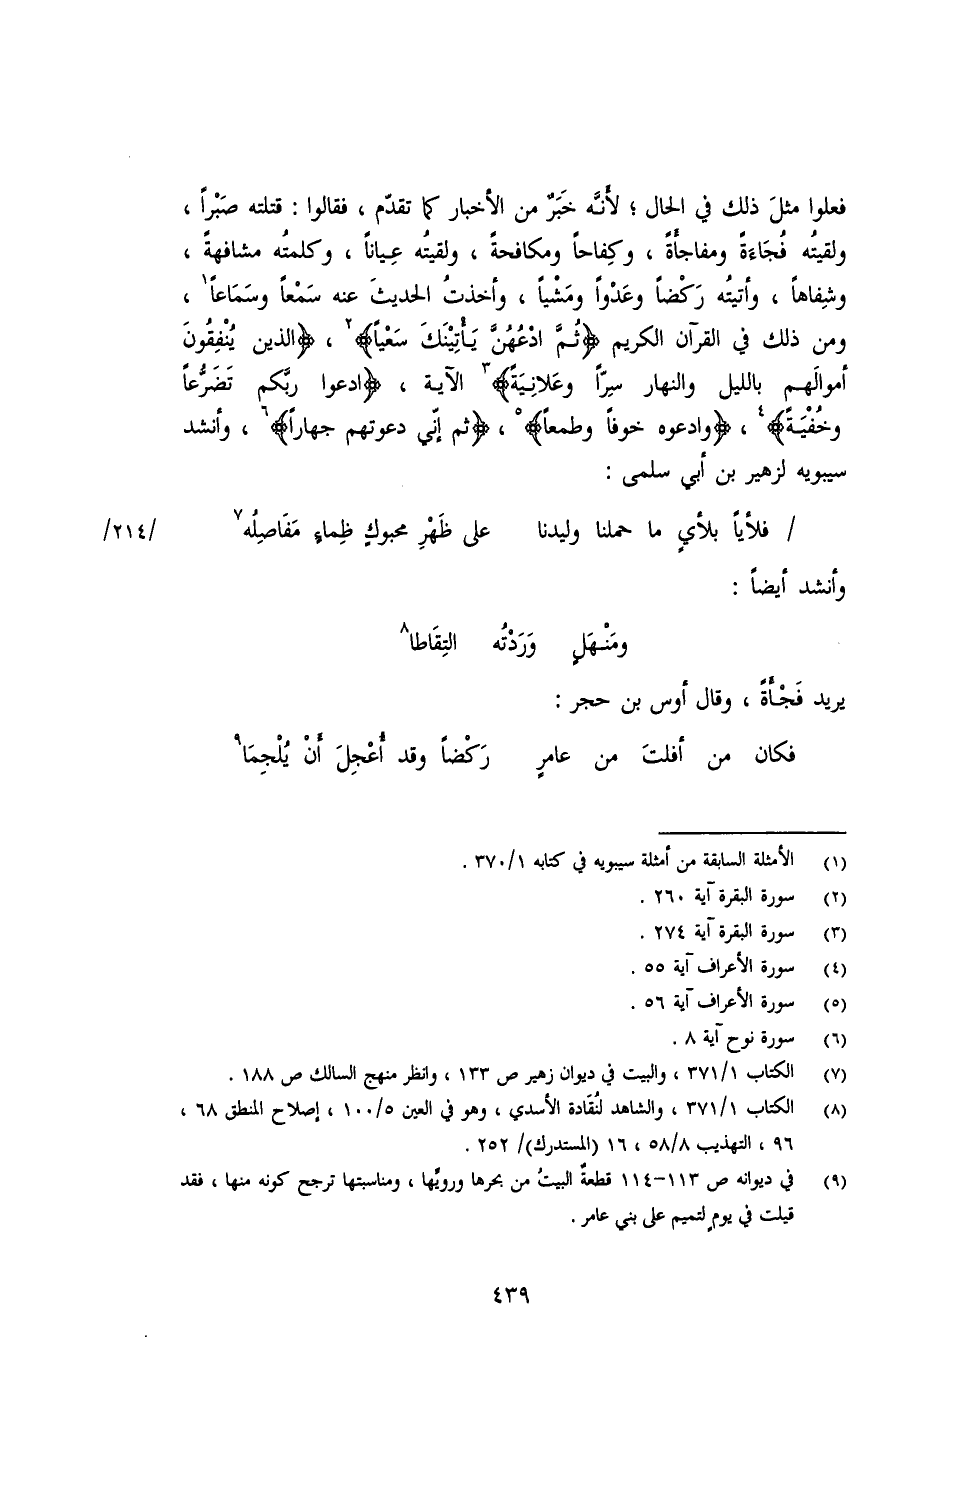 فعلوا مثلَ ذلك في الحال ؛ لأَنَّه خَبَرٌ من الأخبار كما تقدّم ، فقالوا : قتلته صَبْراً ،
ولقيتُه فُجَاءَةً ومفاجأَةً ، وكِفاحاً ومكافحةً ، ولقيتُه عِياناً ، وكلمتُه مشافهةً ،
وشِفاهاً ، وأتيتُه رَكْضاً وعَدْواً ومَشْياً ، وأخذتُ الحديثَ عنه سَمْعاً وسَمَاعاً١ ،
ومن ذلك في القرآن الكريم ﴿ثُمَّ ادْعُهُنَّ يَأْتِيْنَكَ سَعْياً﴾٢ ، ﴿الذين يُنْفِقُونَ
أموالَهم بالليل والنهار سِرّاً وعَلانِيَةً﴾٣ الآية ، ﴿ادعوا ربَّكم تَضَرُّعاً
وخُفْيَةً﴾٤ ، ﴿وادعوه خوفاً وطمعاً﴾٥ ، ﴿ثم إنّي دعوتهم جهاراً﴾٦ ، وأنشد
سيبويه لزهير بن أبي سلمى :
/ فلأياً بلأيٍ ما حملنا وليدنا على ظَهْرِ محبوكٍ ظِماءٍ مَفَاصِلُه٧ /٢١٤/
وأنشد أيضاً :
ومَنْهَلٍ وَرَدْتُه التِقَاطا٨
يريد فَجْأَةً ، وقال أوس بن حجر :
فكان من أفلتَ من عامرٍ رَكْضاً وقد أُعْجِلَ أَنْ يُلْجِمَا٩
(١) الأمثلة السابقة من أمثلة سيبويه في كتابه ٣٧٠/١ .
(٢) سورة البقرة آية ٢٦٠ .
(٣) سورة البقرة آية ٢٧٤ .
(٤) سورة الأعراف آية ٥٥ .
(٥) سورة الأعراف آية ٥٦ .
(٦) سورة نوح آية ٨ .
(٧) الكتاب ٣٧١/١ ، والبيت في ديوان زهير ص ١٣٣ ، وانظر منهج السالك ص ١٨٨ .
(٨) الكتاب ٣٧١/١ ، والشاهد لنُقَادة الأسدي ، وهو في العين ١٠٠/٥ ، إصلاح المنطق ٦٨ ،
٩٦ ، التهذيب ٥٨/٨ ، ١٦ (المستدرك)/ ٢٥٢ .
(٩) في ديوانه ص ١١٣-١١٤ قطعةٌ البيتُ من بحرها ورويِّها ، ومناسبتها ترجح كونه منها ، فقد
قيلت في يومٍ لتميم على بني عامر .
٤٣٩